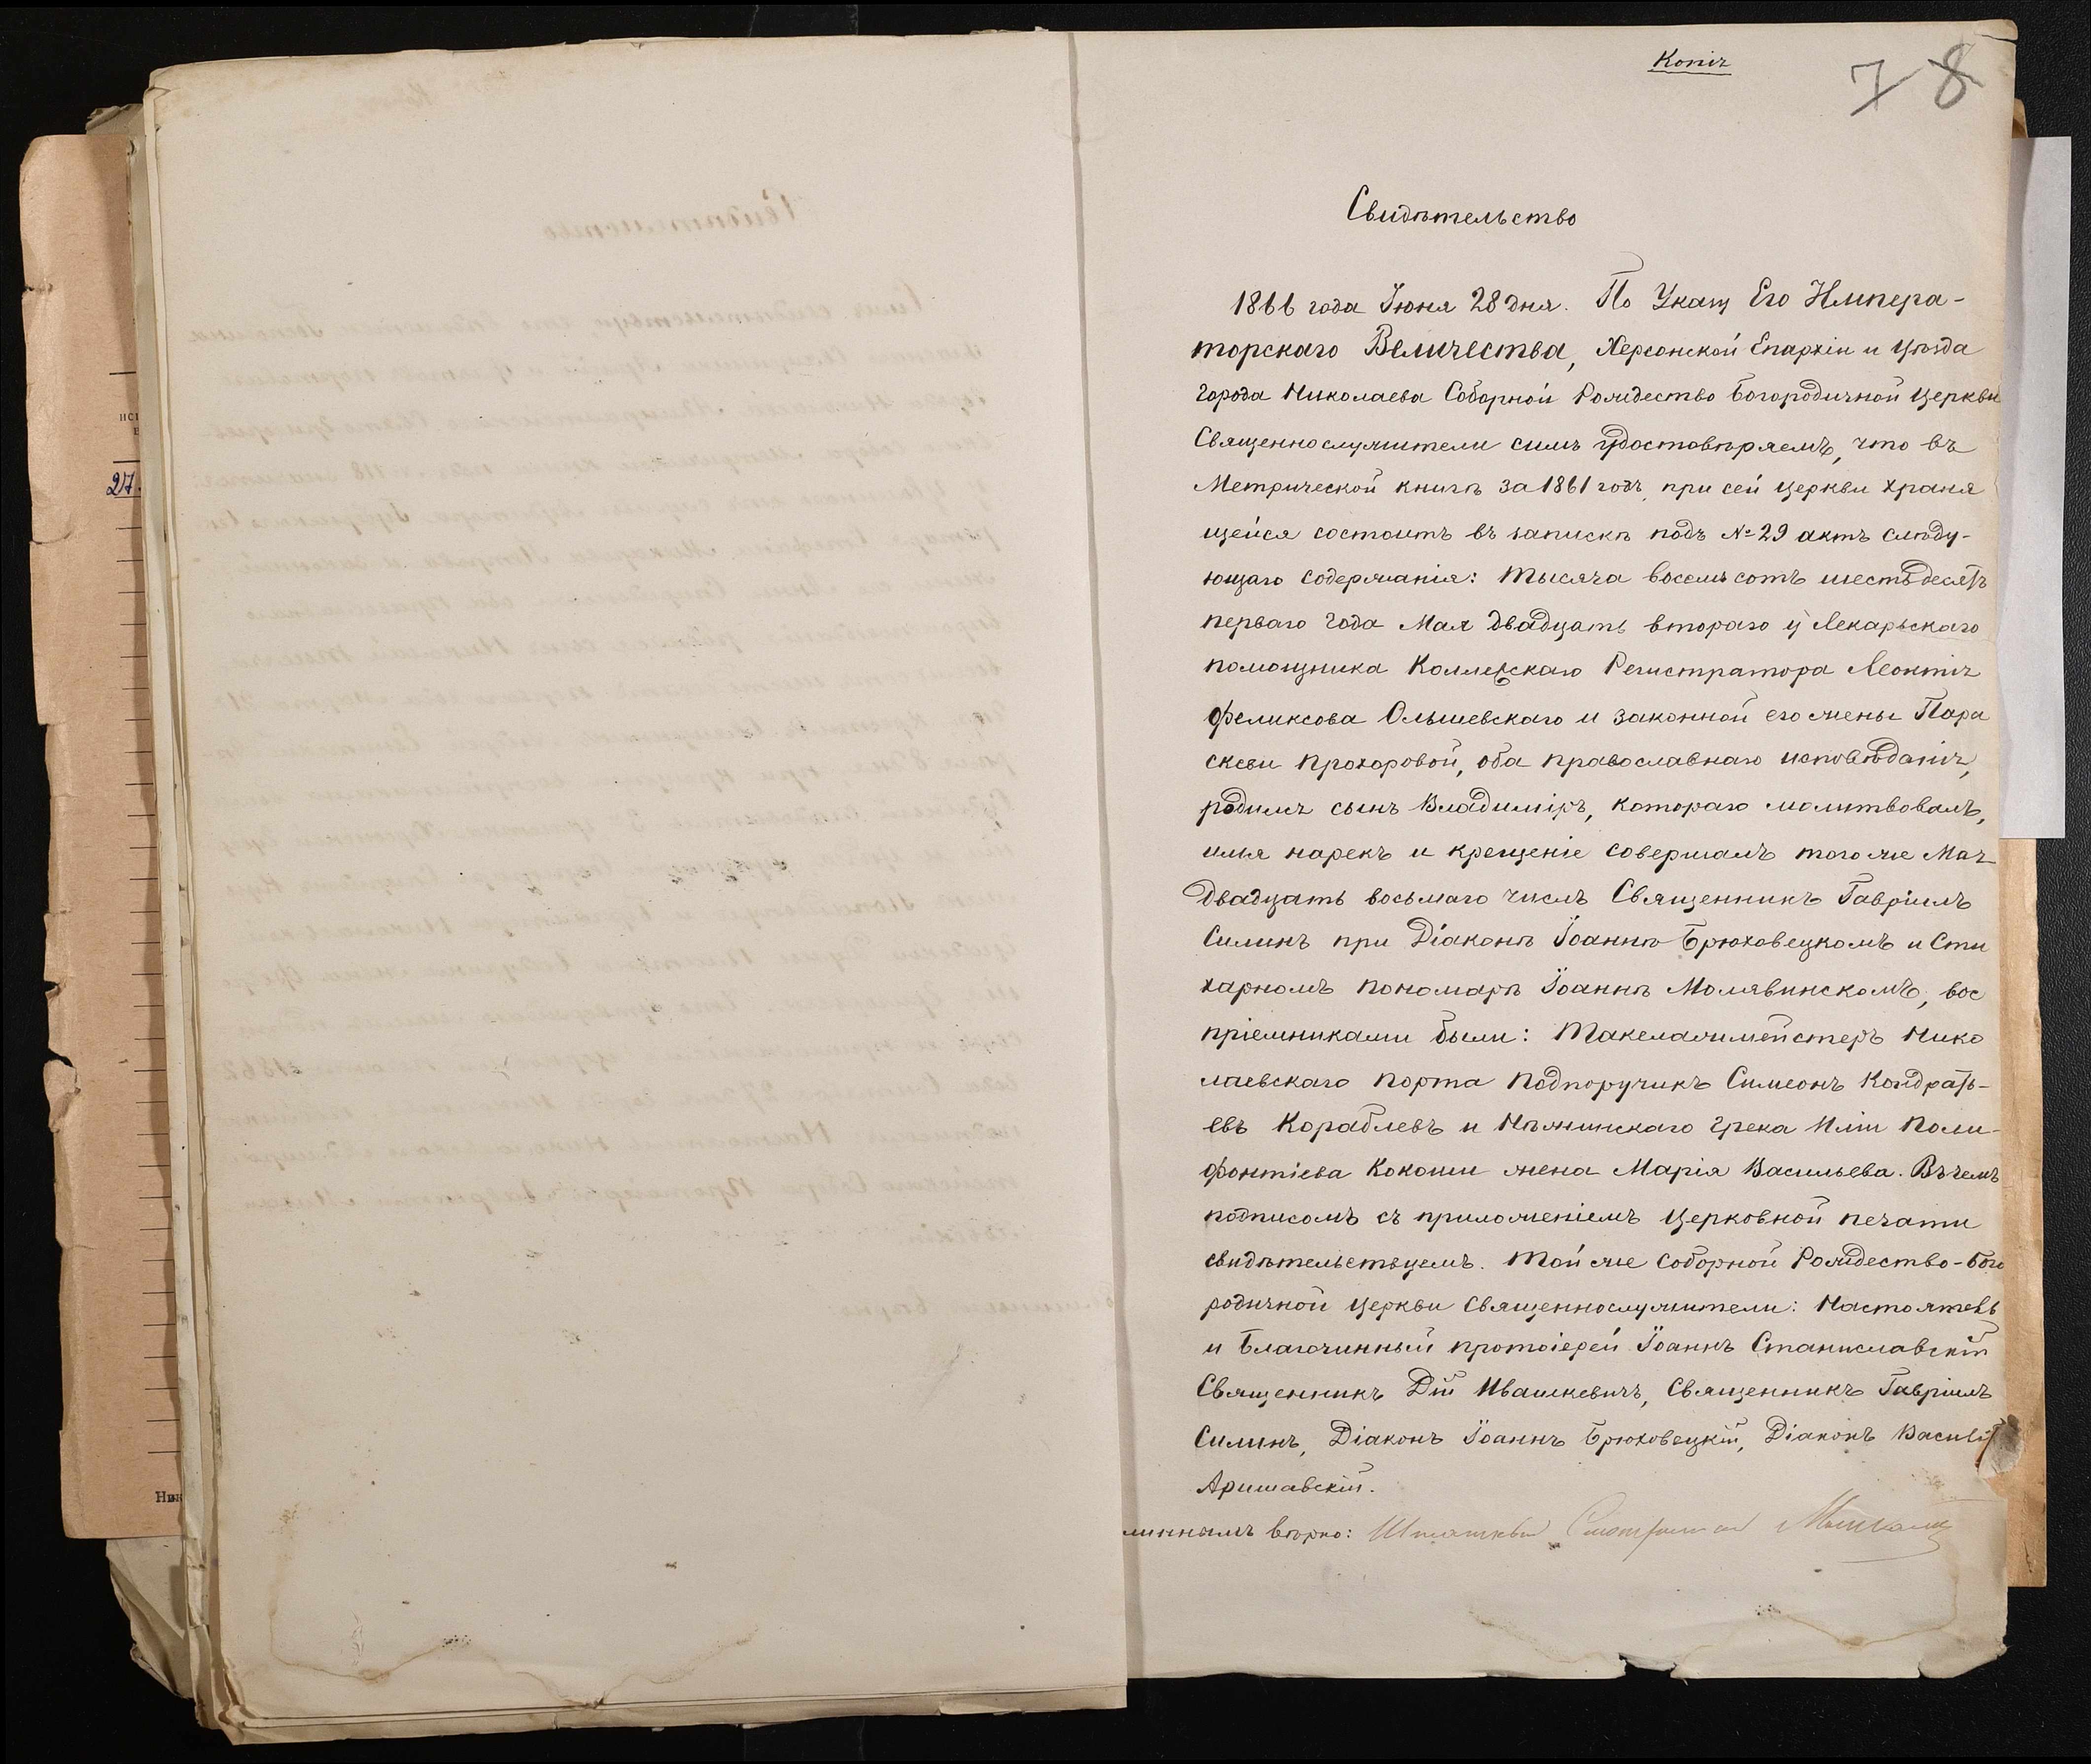 Копія
7 8
Свидѣтельство
1866 года Іюня 28 дня. По Указу Его Импера-
торскаго Величества, Херсонской Епархіи и уѣзда
города Николаева Соборной Рождество Богородичной церкви
Священнослужители симъ удостовѣряемъ, что въ
Метрической книгѣ за 1861 годъ, при сей церкви храня
щейся состоитъ въ запискѣ подъ № 29 актъ слѣду-
ющаго содержанія: Тысяча восемьсотъ шестьдесятъ
перваго года Мая двадцать втораго у Лекарьскаго
помощника Коллежскаго Регистратора Леонтія
Феликсова Ольшевскаго и законной его жены Пара
скеви Прохоровой, оба православнаго исповѣданія,
родился сынъ Владиміръ, котораго молитвовалъ,
имя нарекъ и крещеніе совершалъ того же Мая
двадцать восьмаго числъ Священникъ Гавріилъ
Силинъ при Діаконѣ Іоаннѣ Брюховецкомъ и Сти
харномъ пономарѣ Іоаннѣ Молявинскомъ, вос
пріемниками были: Такелажмейстеръ Нико
лаевскаго порта Подпоручикъ Симеонъ Кондрать-
евъ Кораблевъ и Нѣжинскаго грека Иліи Поли-
фонтіева Кокоши жена Марія Васильева. Въ чемъ
подписомъ съ приложеніемъ церковной печати
свидѣтельствуемъ. Той же Соборной Рождество-Бого
родичной церкви Священнослужители: Настоятель
и Благочинный протоіерей Іоаннъ Станиславскій
Священникъ Дій Ивашкевичъ, Священникъ Гавріилъ
Силинъ, Діаконъ Іоаннъ Брюховецкій, Діаконъ Василій
Аришавскій.
линнымъ вѣрно: Смотритель
27.